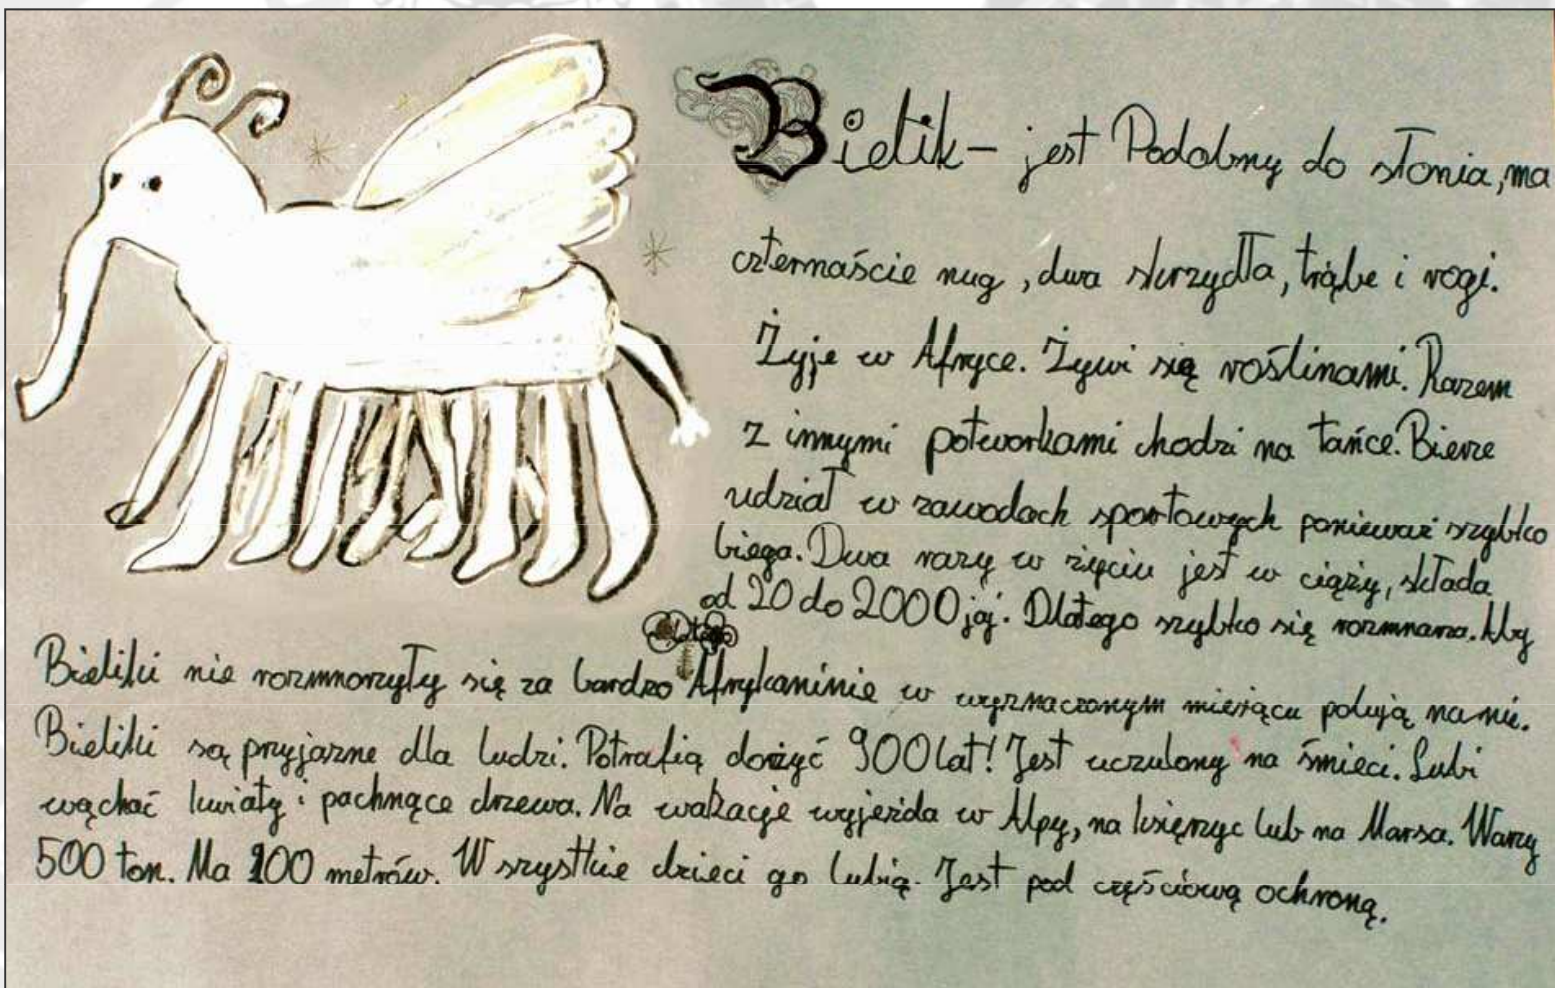 Bielik – jest Podobny do słonia, ma
czternaście nug, dwa skrzydła, trąbe i rogi.
Żyje w Afryce. Żywi się roślinami. Razem
z innymi potworkami chodzi na tańce. Bierze
udział w zawodach sportowych ponieważ szybko
biega. Dwa razy w życiu jest w ciąży, składa
od 20 do 2000 jaj. Dlatego szybko się rozmnaża. Aby
Bieliki nie rozmnożyły się za bardzo Afrykaninie w wyznaczonym miesiącu polują na nie.
Bieliki są przyjazne dla ludzi. Potrafią dożyć 900 lat! Jest uczulony na śmieci. Lubi
wąchać kwiaty i pachnące drzewa. Na wakacje wyjeżda w Alpy, na księżyc lub na Marsa. Waży
500 ton. Ma 200 metrów. Wszystkie dzieci go lubią. Jest pod częściową ochroną.